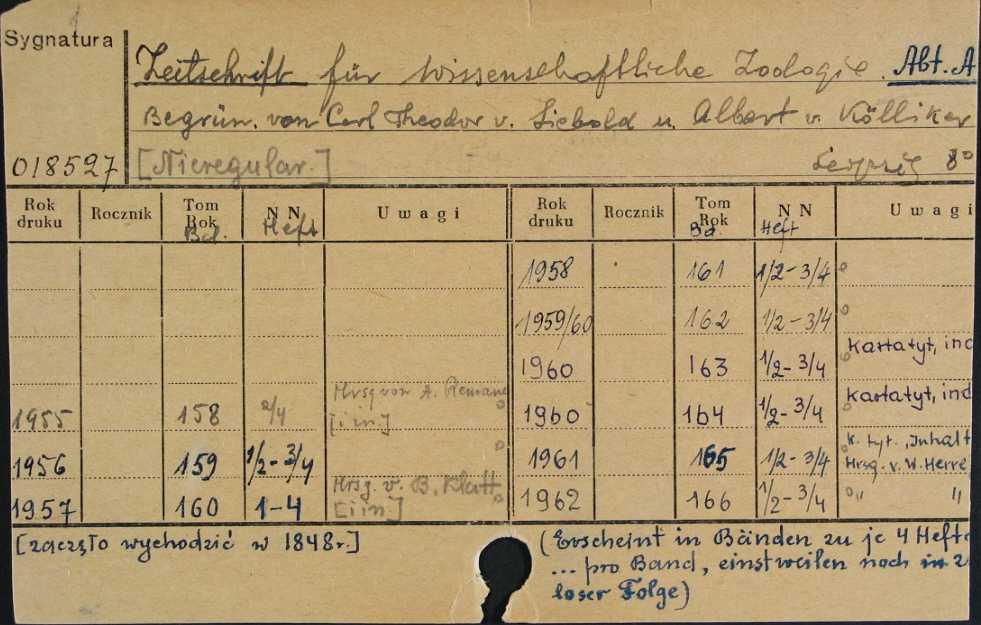 Sygnatura
Zeitschrift für wissenschaftliche Zoologie. Abt. A
Begrün. von Carl Theodor v. Siebold u. Albert v. Kölliker
018527 [Nieregular.] Leipzig 8°
Rok druku Rocznik Tom Rok Bd. N N Heft Uwagi Rok druku Rocznik Tom Rok Bd. N N Heft Uwagi
1958 161 1/2-3/4
1959/60 162 1/2-3/4
1960 163 1/2-3/4 kartatyt, ind
1955 158 2/4 Hrsg von A. Remane [i in.] 1960 164 1/2-3/4 kartatyt, ind
1956 159 1/2-3/4 1961 165 1/2-3/4 k. tyt., Inhalt Hrsg. v. W. Herre
1957 160 1-4 Hrsg. v. B. Klatt [i in.] 1962 166 1/2-3/4 " "
[zaczęło wychodzić w 1848 r.] (Erscheint in Bänden zu je 4 Hefte
... pro Band, einstweilen noch in
loser Folge)